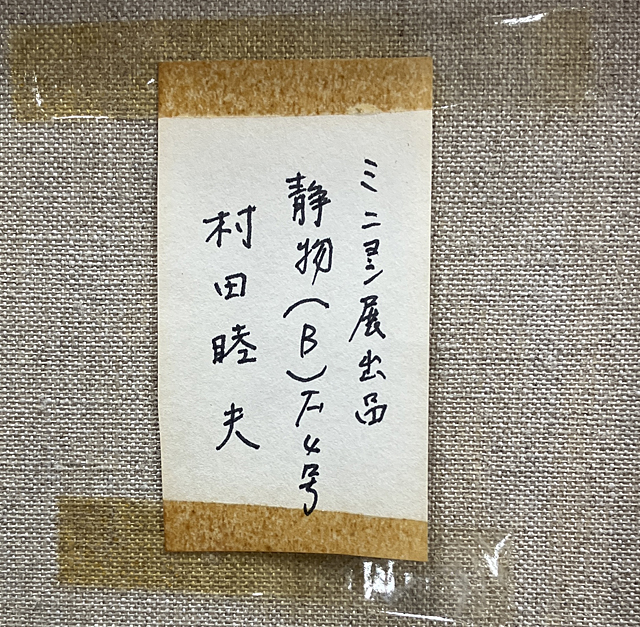 ミニヨン展出品
静物(B)F4号
村田睦夫